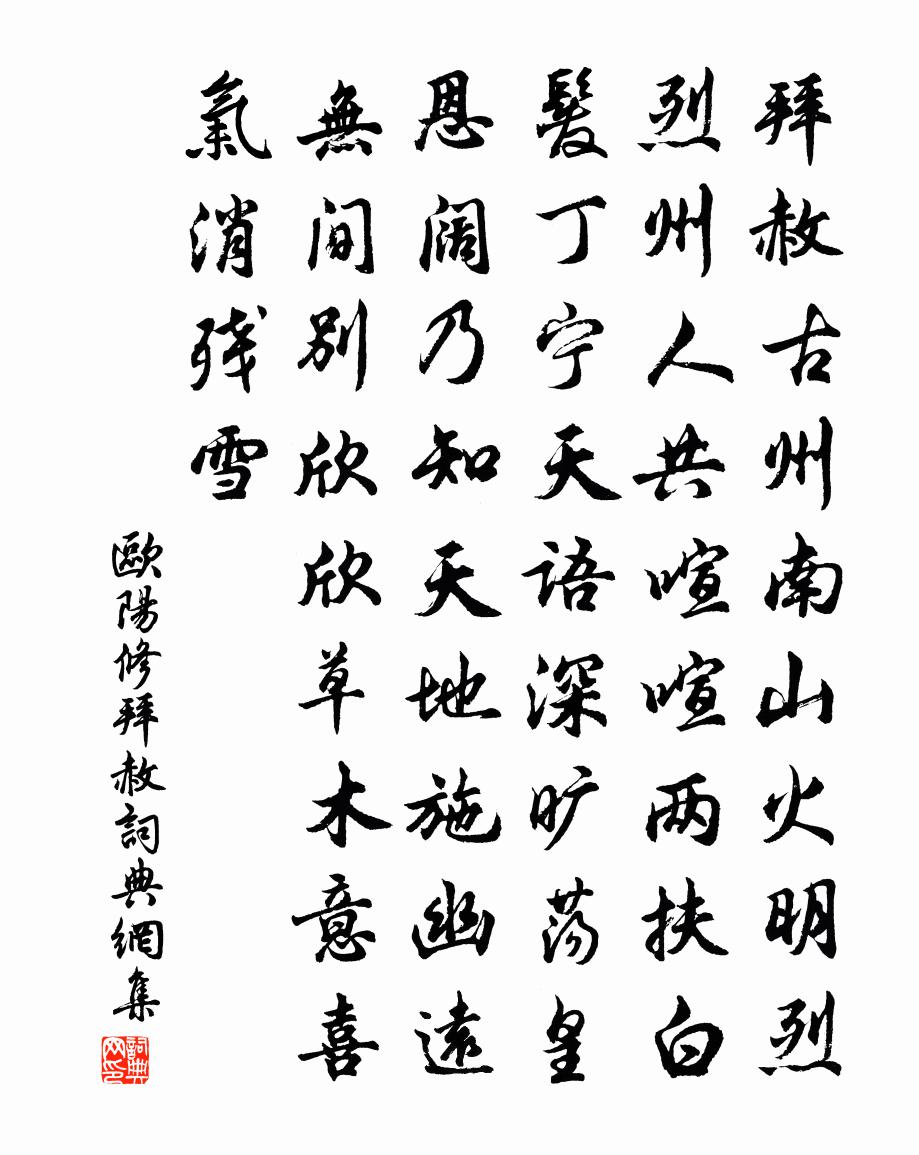 拜赦古州南山火明烈
烈州人共喧喧两扶白
髮丁宁天語深旷荡皇
恩阔乃知天地施幽遠
無间别欣欣草木意喜
氣消残雪
歐陽修拜赦詞典網集
詞典网印